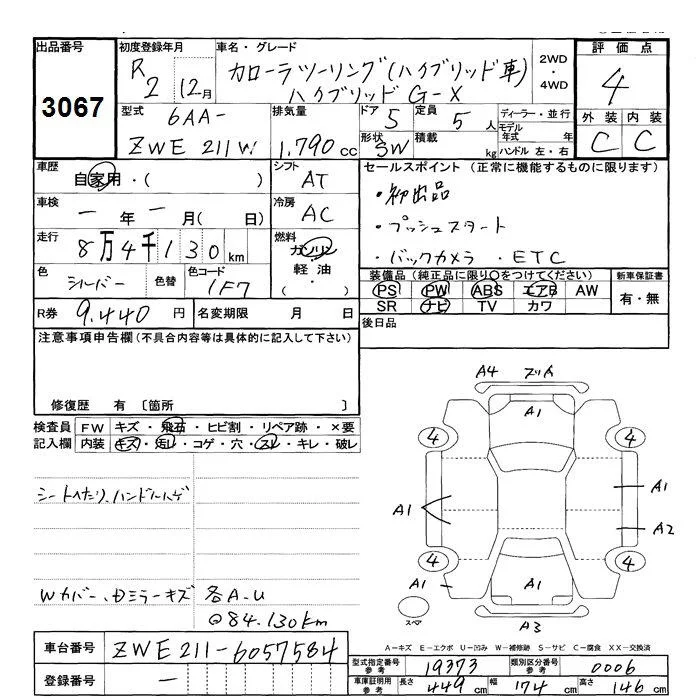 出品番号 初度登録年月 車名・グレード 2WD・4WD 評価点
3067 R2 12月 カローラツーリング(ハイブリッド車) 4
ハイブリッド G-X
型式 6AA- 排気量 ドア 5 定員 5人 ディーラー・並行 外装 内装
ZWE 211W 1.790cc 形状 SW 積載 kg モデル年式 年 C C
ハンドル 左・右
車歴 自家用・( ) シフト AT セールスポイント (正常に機能するものに限ります)
車検 ー年ー月(日) 冷房 AC ・初出品
・プッシュスタート
走行 8万4千130km 燃料 ガソリン ・バックカメラ ・ETC
軽油・( )
色 シルバー 色替 色コード 1F7 装備品 (純正品に限り○をつけてください) 新車保証書
PS PW ABS エアB AW 有・無
SR ナビ TV カワ
R券 9.440円 名変期限 月 日 後日品
注意事項申告欄 (不具合内容等は具体的に記入して下さい)
修復歴 有 〔箇所 〕
検査員 FW キズ・飛石・ヒビ割・リペア跡・×要
記入欄 内装 キズ・汚レ・コゲ・穴・スレ・キレ・破レ
シートヘたり、ハンドルハゲ
Wカバー、Dミラーキズ 各A-U
@84.130km
A4
A1
4 4
A1 A1
A2
4 4
A1 A1 A1
スペア A3
A-キズ E-エクボ U-凹み W-補修跡 S-サビ C-腐食 XX-交換済
車台番号 ZWE211-6057584
型式指定番号 参考 19373 類別区分番号 参考 0006
登録番号 ー
車庫証明用 参考 長さ 449cm 幅 174cm 高さ 146cm